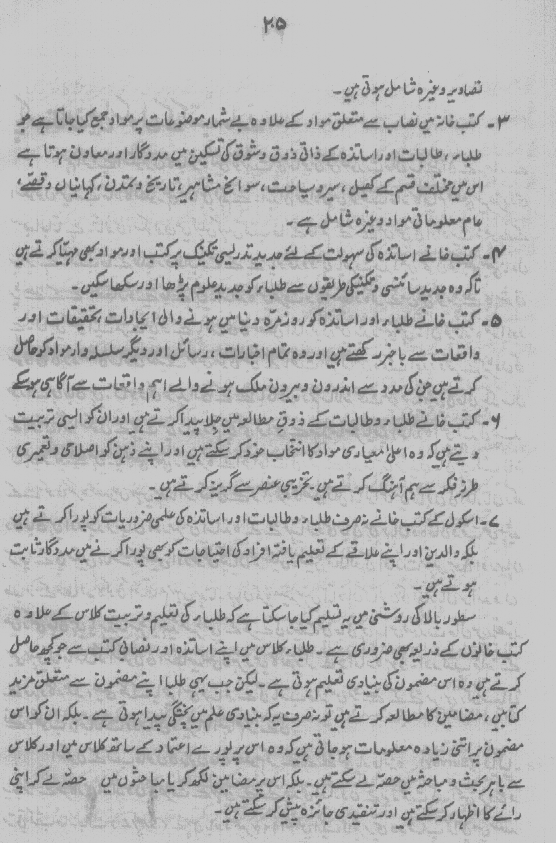 ۲۰۵
تصاویر وغیرہ شامل ہوتی ہیں۔
۳۔ کتب خانہ میں نصاب سے متعلق مواد کے علاوہ بے شمار موضوعات پر مواد جمع کیا جاتا ہے جو
طلباء، طالبات اور اساتذہ کے ذاتی ذوق و شوق کی تسکین میں مددگار اور معاون ہوتا ہے
اس میں مختلف قسم کے کھیل، سیر و سیاحت، سوانح مشاہیر، تاریخ و تمدن، کہانیاں و قصّے،
عام معلوماتی مواد وغیرہ شامل ہے۔
۴۔ کتب خانے اساتذہ کی سہولت کے لئے جدید تدریسی تکنیک پر کتب اور مواد بھی مہیّا کرتے ہیں
تاکہ وہ جدید سائنسی و تکنیکی طریقوں سے طلباء کو جدید علوم پڑھا اور سکھا سکیں۔
۵۔ کتب خانے طلباء اور اساتذہ کو روزمرّہ دنیا میں ہونے والی ایجادات، تحقیقات اور
واقعات سے باخبر رکھتے ہیں اور وہ تمام اخبارات، رسائل اور دیگر سلسلہ وار مواد کو حاصل
کرتے ہیں جن کی مدد سے اندرون و بیرون ملک ہونے والے اہم واقعات سے آگاہی ہو سکے
۶۔ کتب خانے طلباء و طالبات کے ذوق مطالعہ میں جلا پیدا کرتے ہیں اور ان کو ایسی تربیت
دیتے ہیں کہ وہ اعلیٰ معیاری مواد کا انتخاب خود کر سکتے ہیں اور اپنے ذہن کو اصلاحی و تعمیری
طرز فکر سے ہم آہنگ کرتے ہیں۔ تخریبی عنصر سے گریز کرتے ہیں۔
۷۔ اسکول کے کتب خانے نہ صرف طلباء و طالبات اور اساتذہ کی علمی ضروریات کو پورا کرتے ہیں
بلکہ والدین اور اپنے علاقے کے تعلیم یافتہ افراد کی احتیاجات کو بھی پورا کرنے میں مددگار ثابت
ہوتے ہیں۔
سطور بالا کی روشنی میں یہ تسلیم کیا جا سکتا ہے کہ طلباء کی تعلیم و تربیت کلاس کے علاوہ
کتب خانوں کے ذریعہ بھی ضروری ہے۔ طلباء کلاس میں اپنے اساتذہ اور نصابی کتب سے جو کچھ حاصل
کرتے ہیں وہ اس مضمون کی بنیادی تعلیم ہوتی ہے۔ لیکن جب یہی طلبا اپنے مضمون سے متعلق مزید
کتابیں، مضامین کا مطالعہ کرتے ہیں تو نہ صرف یہ کہ بنیادی علم میں پختگی پیدا ہوتی ہے۔ بلکہ ان کو اس
مضمون پر اتنی زیادہ معلومات ہو جاتی ہیں کہ وہ اس پر پورے اعتماد کے ساتھ کلاس میں اور کلاس
سے باہر بحث و مباحثہ میں حصّہ لے سکتے ہیں۔ بلکہ اس پر مضامین لکھ کر یا مباحثوں میں حصّہ لے کر اپنی
رائے کا اظہار کر سکتے ہیں اور تنقیدی جائزہ پیش کر سکتے ہیں۔